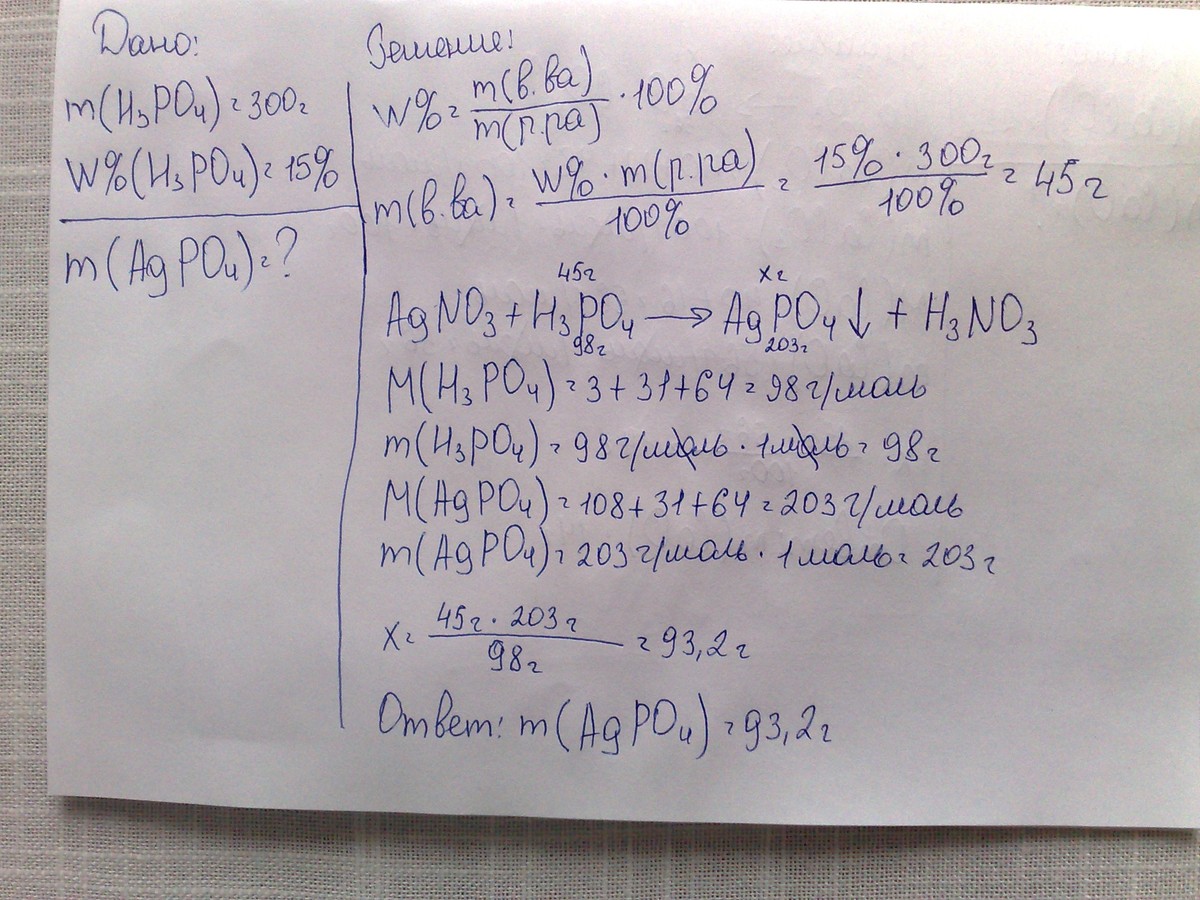 Дано:
m(H₃PO₄) = 300г
W%(H₃PO₄) = 15%
m(AgPO₄) = ?
Решение:
W% = m(в.ва) / m(р.ра) · 100%
m(в.ва) = W% · m(р.ра) / 100% = 15% · 300г / 100% = 45г
45г xг
AgNO₃ + H₃PO₄ → AgPO₄↓ + H₃NO₃
98г 203г
M(H₃PO₄) = 3 + 31 + 64 = 98 г/моль
m(H₃PO₄) = 98 г/моль · 1 моль = 98г
M(AgPO₄) = 108 + 31 + 64 = 203 г/моль
m(AgPO₄) = 203 г/моль · 1 моль = 203г
x = 45г · 203г / 98г = 93,2г
Ответ: m(AgPO₄) = 93,2г